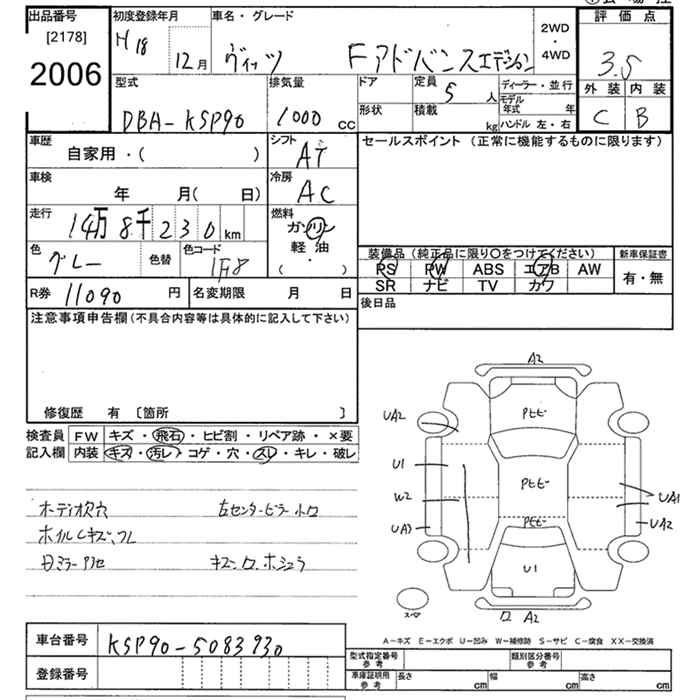 出品番号
[2178]
2006
初度登録年月
H18 12月
車名・グレード
ヴィッツ Fアドバンスエデション
2WD
・
4WD
評価点
3.5
外装 内装
C B
型式
DBA-KSP90
排気量
1000 cc
ドア
形状
定員
5 人
積載
kg
ディーラー・並行
モデル年式 年
ハンドル 左・右
車歴
自家用・( )
シフト
AT
セールスポイント (正常に機能するものに限ります)
車検
年 月( 日)
冷房
AC
走行
14万8千230km
燃料
ガソリン
軽・油
( )
色
グレー
色替
色コード
1F8
装備品(純正品に限り○をつけてください)
PS PW ABS エアB AW
SR ナビ TV カワ
新車保証書
有・無
R券 11090 円
名変期限 月 日
後日品
注意事項申告欄(不具合内容等は具体的に記入して下さい)
修復歴 有 〔箇所 〕
検査員
記入欄
FW キズ・飛石・ヒビ割・リペア跡・×要
内装 キズ・汚レ・コゲ・穴・スレ・キレ・破レ
オーディオ欠穴 左センターピラー小ロ
ホイルCキズ、フレ
日ミラーアセ キズ、ロ、ホシュラ
A2
UA2
Pヒビ
U1
PヒビW2
UA1
UA3
UA2
Pヒビ
U1
スペア
ロ A2
A-キズ E-エクボ U-凹み W-補修跡 S-サビ C-腐食 XX-交換済
車台番号 KSP90-5083930
登録番号
型式指定番号
参考
類別区分番号
参考
車庫証明用
参考
長さ cm 幅 cm 高さ cm